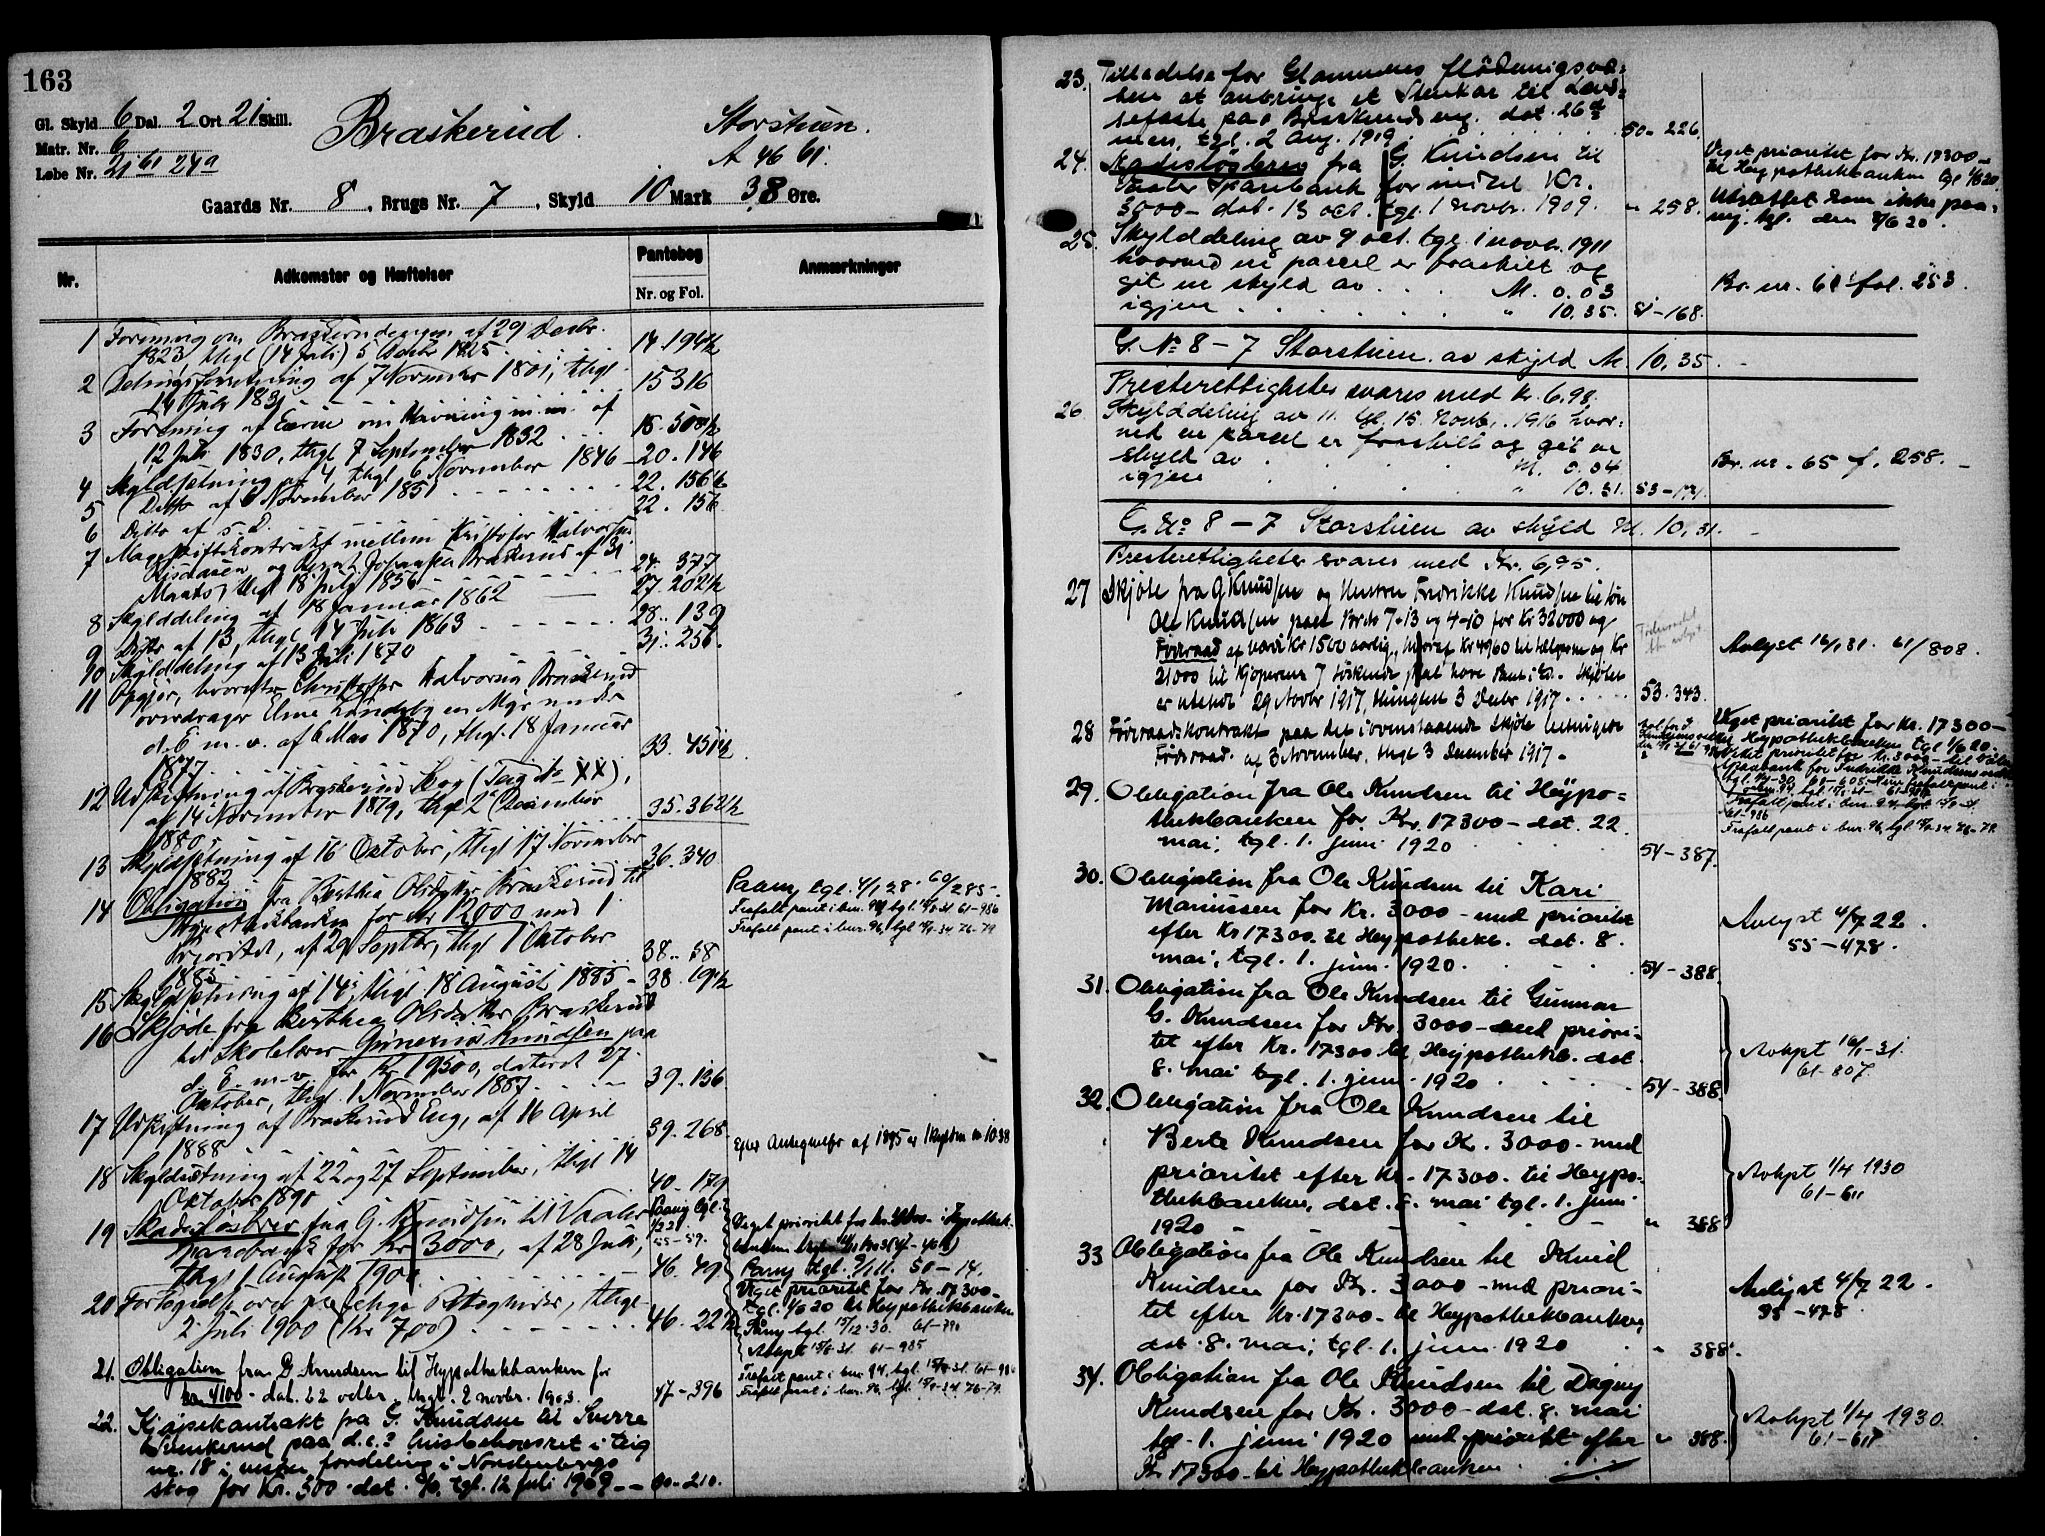 163
Gl. Skyld 6 Dal. 2 Ort 21 Skill.
Matr. Nr. 6
Løbe Nr. 21 61 24a
Braskerud.
Storstuen.
A 46 61.
Gaards Nr. 8, Brugs Nr. 7, Skyld 10 Mark 38 Øre.
Nr.
Adkomster og Hæftelser
Pantebog
Nr. og Fol.
Anmærkninger
1 Forening om Braskerudengen af 29 Decbr.
1823, thgl (14 Juli) 5 1825 14. 194½
2 Delingsforretning af 7 November 1801, thgl
14 Juli 1831 15 316
3 Forening af Eierne om Havning m.m. af
12 Juli 1830, thgl 7 September 1832 15. 508½
4 Skyldsætning thgl 6 November 1846 20. 146
5 Ditto af 6 November 1851 22. 156½
6 Ditto af s. D. 22. 156
7 Mageskiftekontrakt mellem Kristofer Halvorsen
og Johansen Braskerud af 31
Marts, thgl 18 Juli 1856 24. 377
8 Skylddeling af 18 Januar 1862 27. 202½
9 Ditto af 13, thgl 14 Juli 1863 28. 139
10 Skylddeling af 13 Juli 1870 31. 256.
11 Opgjør, hvorefter Christoffer Halvorsen Braskerud
overdrager Eline Landsby en Myr under
d. E. m. v. af 6 Mai 1870, thgl. 18 Januar
1877 33. 451½
12 Udskiftning af Braskerud Skog (Teig № XX),
af 14 November 1879, thgl 2 December
1880. 35. 362½
13 Skyldsætning af 16 Oktober, thgl 17 November
1882 36. 340
14 Obligation fra Berthea Olsdatter Braskerud til
Hypothekbanken for Kr 12000 med 1
Prioritet, af 29 Septbr, thgl 1 Oktober
1885 38. 58
Paany tgl. 4/1 28. 60/285
Frafalt pant i bnr. 94, tgl. 61-986
Frafalt pant i bnr. 96, tgl. 76-79
15 Skyldsætning af 14, thgl 18 August 1885 38. 19½
16 Skjøde fra Berthea Olsdatter Braskerud
til Skolelærer Gunerius Knudsen paa
d. E. m. v. for Kr 19500, dateret 27
Oktober, thgl. 1 November 1887. 39. 136
17 Udskiftning af Braskerud Eng, af 16 April
1888 39. 268
Efter af 1895 er Skylden m 10.38
18 Skyldsætning af 22 og 27 September, thgl 14
Oktober 1890 40. 179
19 Skadesløsbrev fra G. Knudsen til Vaaler
Sparebank for Kr 3000, af 28 Juli,
thgl 1 August 1900. 46. 49
Paany tgl. 50-14.
Veget prioritet for Kr. 17300
tgl. 1/6 20 til Heypothekbanken
Paany tgl. 15/12-30. 61-790
Avlyst 61-985
20 Fortegnelse over pligtige Tileygninger, thgl
2 Juli 1900 (Kr 7,00) 46. 22½
Frafalt pant i bnr. 94, tgl. 61-986
Frafalt pant i bnr. 96, tgl. 76-79.
21. Obligation fra G. Knudsen til Hypothekbanken for
kr. 4100 - dat. 22 octbr., thgl. 2 novbr. 1903. 47-396
22. Kjøpekontrakt fra G. Knudsen til Sverre
paa d.e.s hustehovsret i teig
nr. 18 i fordeling i Nordenbergs
skog for Kr. 300 dat. tgl. 12 juli 1909 - 50-210.
23. Tilladelse for Glommens flødningsvæ-
sen at anbringe et Stenkar til Lend-
sefæste paa Braskerud eng. dat. 26de
mars, tgl. 2 aug. 1919 50-226.
24. Skadesløsbrev fra G. Knudsen til
Vaaler Sparebank for indtil Kr.
3000 - dat. 13 oct. tgl. 1 novbr. 1909. " 258.
Veget prioritet for Kr. 17300
til Heypothekbanken tgl 1/6 20.
Utslettet som ikke paa-
ny. tgl. den 1/6 20.
25. Skylddeling av 9 oct. tgl. 1 novbr. 1911
hvorved en parcel er fraskilt og
git en skyld av M. 0.03
igjen " 10.35. 51-168.
Br. nr. 61 fol. 253.
G. № 8 - 7 Storstuen av skyld M. 10,35.
Presterettigheter svares med Kr. 6,98.
26 Skylddeling av 11. tgl. 15. novbr. 1916 hvor-
ved en parcel er fraskilt og git en
skyld av M. 0.04
igjen " 10.31. 53-171.
Br. nr. 65 f. 258.
G. No 8 - 7 Storstuen av skyld M. 10,31.
Presterettigheter svares med Kr. 6,95.
27 Skjøte fra G Knudsen og Hustru Fredrikke Knudsen til søn
Ole Knudsen paa Br.nr. 7-13 og 4-10 for Kr 32000 og
Føderaad af værdi Kr 1500 aarlig, hvoraf Kr 4960 til og Kr
21000 til Kjøperens 7 søskende skal have Pant i Ed. Skjøtet
er utstedt 29 Novbr 1917, thinglest 3 Decbr 1917. 53. 343.
Avlyst 16/1 31. 61/808.
28 Føderaadskontrakt paa det i ovenstaaende Skjøte betingede
Føderaad. af 3 November, thgl 3 December 1917.
Veget prioritet for Kr. 17300
til Heypothekbanken tgl 1/6 20.
Veket prioritet for kr. 3000 - til Vaaler
Sparebank for Fredrikke Knudsens
61-986
Frafalt pant i bnr. 96, tgl. 76-79.
29. Obligation fra Ole Knudsen til Heypo-
thekbanken for Kr. 17300 - dat. 22.
mai, tgl. 1. juni 1920 54-387.
30. Obligation fra Ole Knudsen til Kari
Mariussen for Kr. 3000 - med prioritet
efter Kr 17300. til Heypothekb. dat. 8.
mai, tgl. 1. juni 1920. 54-388.
Avlyst 4/7 22.
55-478.
31. Obligation fra Ole Knudsen til Gunnar
G. Knudsen for Kr. 3000 - med priori-
tet efter Kr. 17300 til Heypothekb. dat.
8. mai tgl. 1. juni 1920 54-388.
Avkpt 16/1-31.
61-807.
32. Obligation fra Ole Knudsen til
Berte Knudsen for Kr. 3000 - med
prioritet efter Kr. 17300. til Heypo-
thekbanken, dat. 8. mai tgl. 1. juni
1920 " 388
Avkpt 1/4 1930
61-611
33 Obligation fra Ole Knudsen til Knud
Knudsen for Kr. 3000 - med priori-
tet efter Kr. 17300 - til Heypothekbanken,
dat. 8. mai, tgl. 1. juni 1920 " 388.
Avlyst 4/7 22.
55-478.
34. Obligation fra Ole Knudsen til Dagny
Knudsen for Kr. 3000 - dat. 8. mai
tgl. 1. juni 1920 med prioritet efter " 388.
Kr. 17300 - til Heypothekbanken.
Avkpt 1/4 1930.
61-611